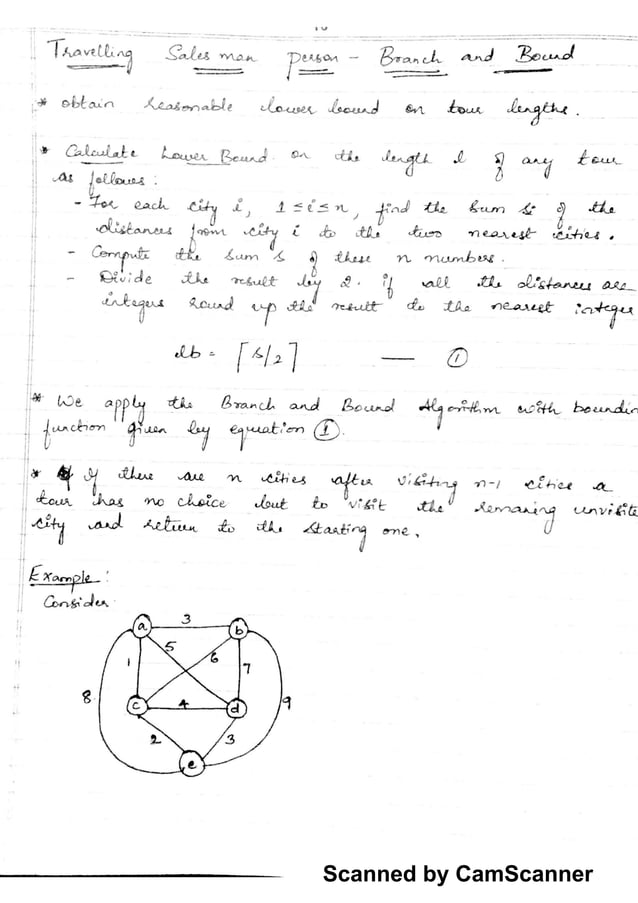 Travelling Sales man person - Branch and Bound
* obtain reasonable lower bound on tour lengths.
* Calculate Lower Bound on the length l of any tour
as follows:
- For each city i, 1 ≤ i ≤ n, find the sum si of the
distances from city i to the two nearest cities.
- Compute the sum s of these n numbers.
- Divide the result by 2. if all the distances are
integers round up the result to the nearest integer
lb = ⌈s/2⌉ — ①
* We apply the Branch and Bound Algorithm with boundin
function given by equation ①.
* If there are n cities after visiting n-1 cities a
tour has no choice but to visit the remaning unvisite
city and return to the starting one.
Example:
Consider
a 3 b
5
1 6 7
8 9
c 4 d
2 3
e
Scanned by CamScanner